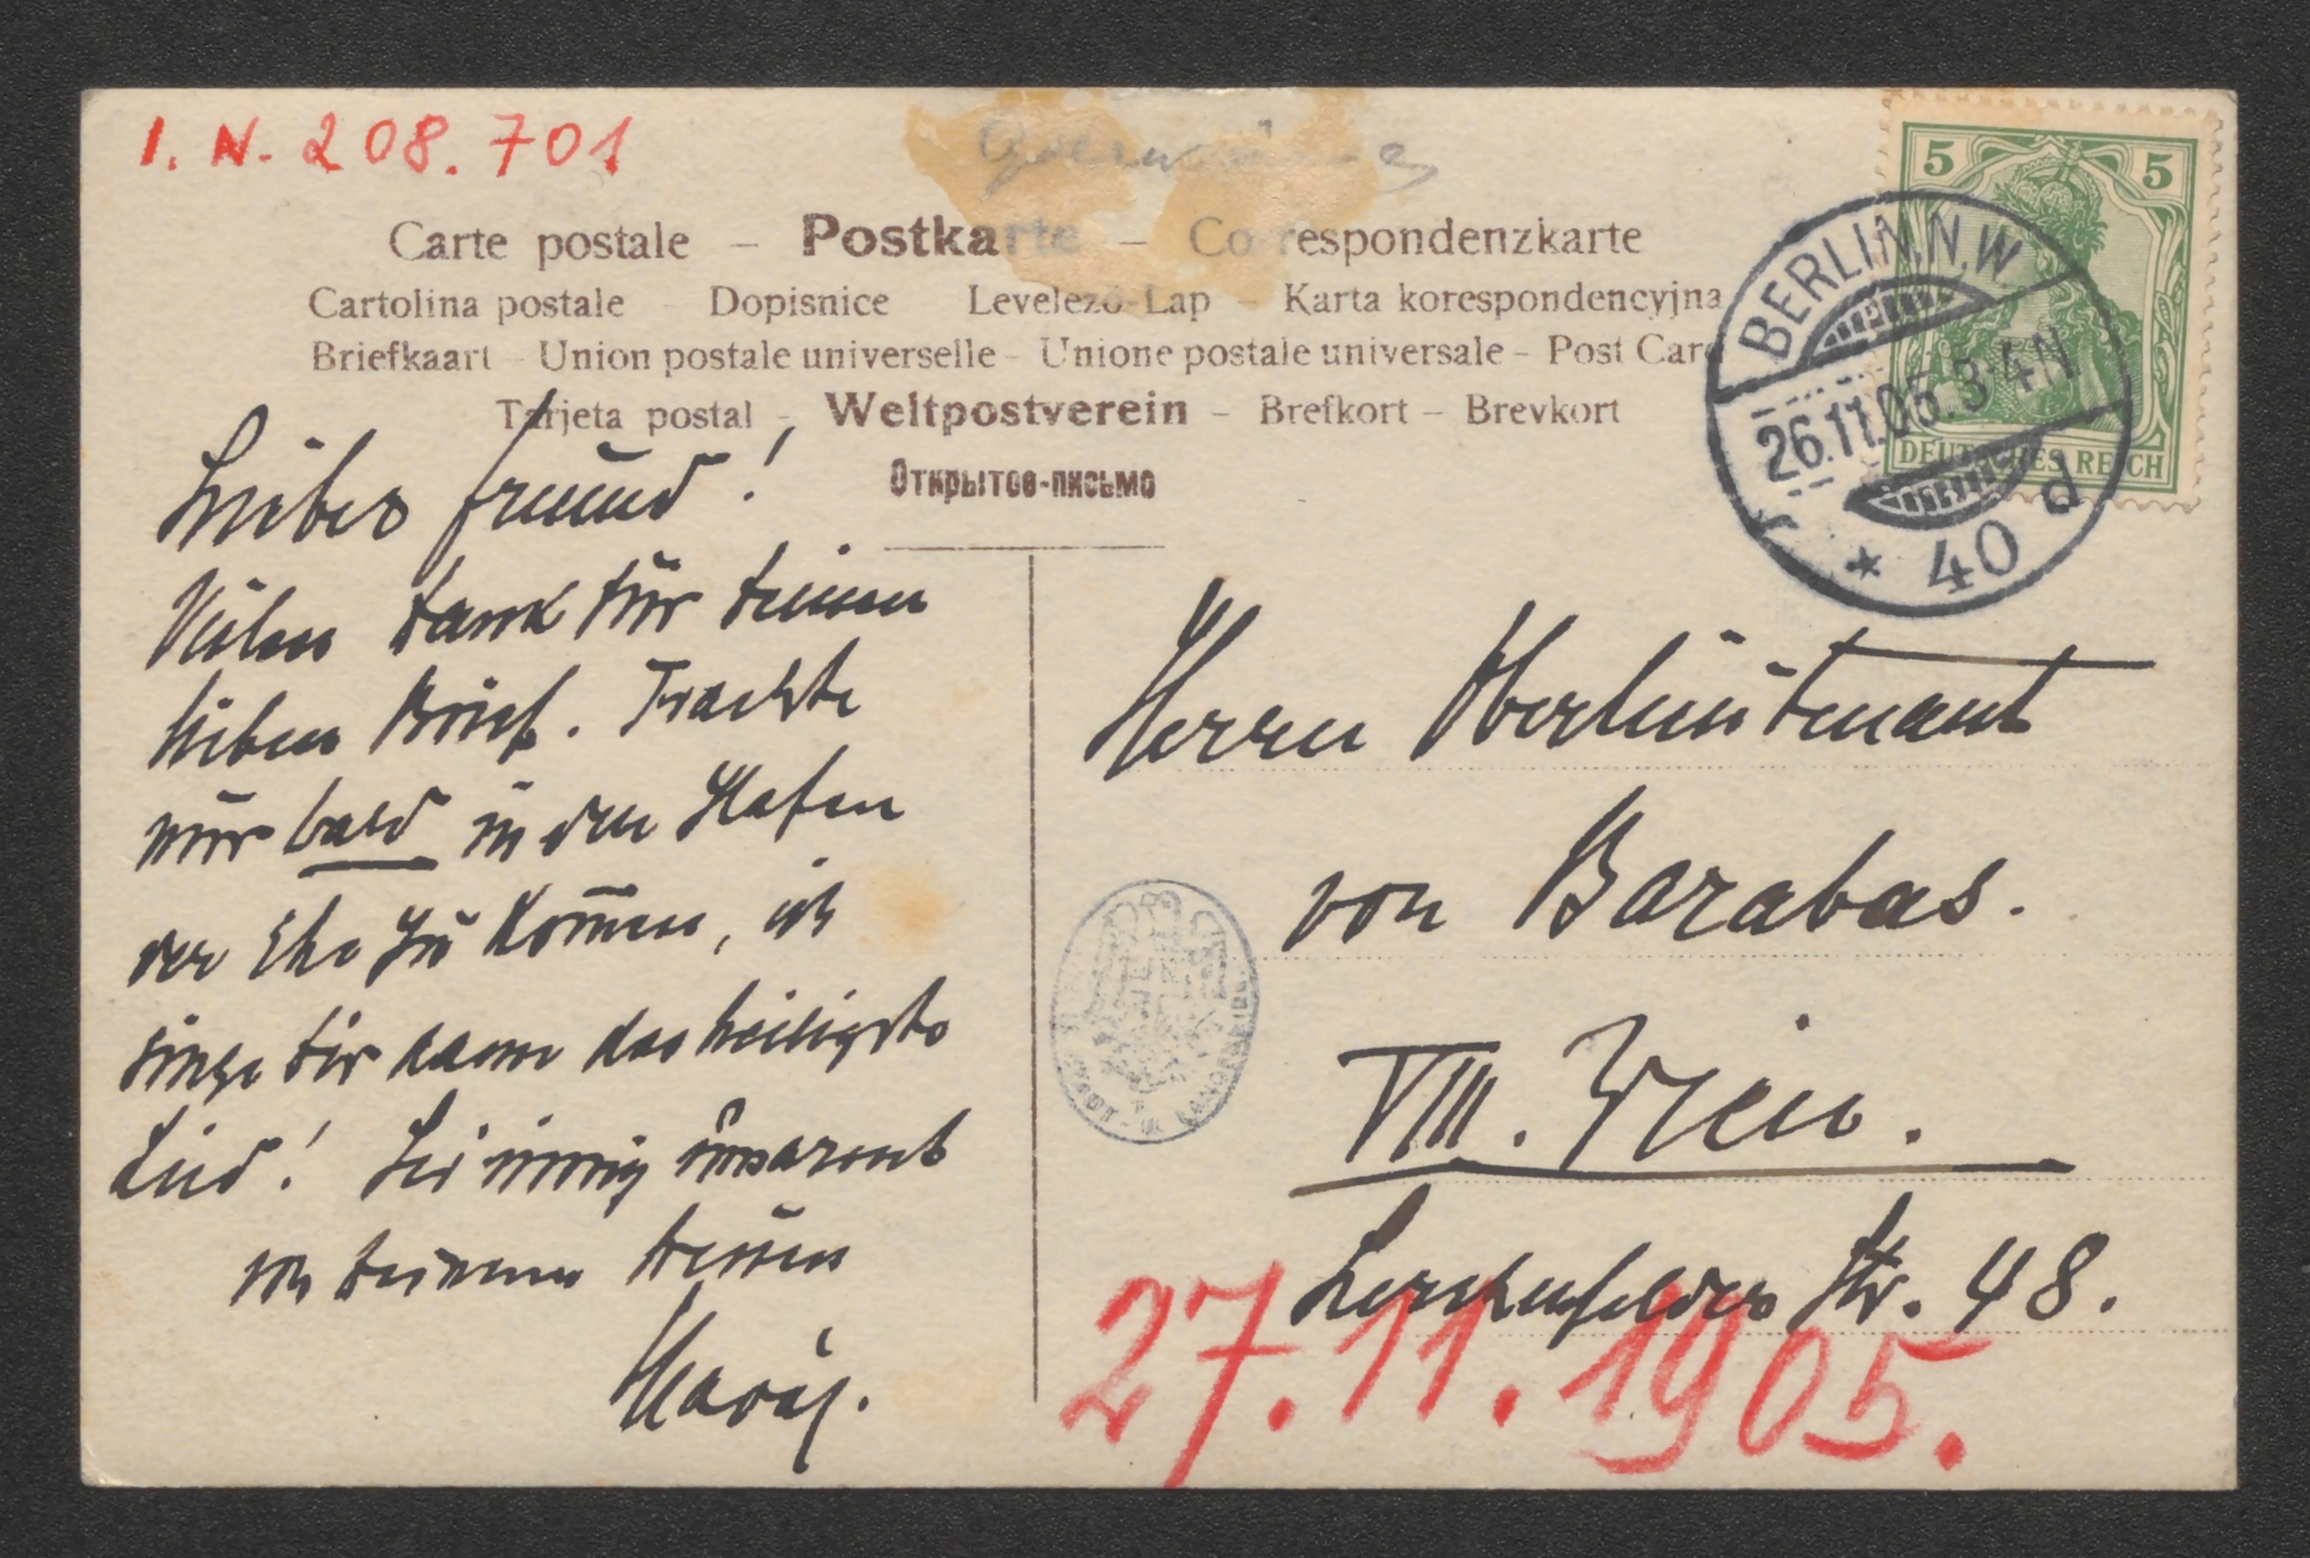 I. N. 208.701
Carte postale – Postkarte – Correspondenzkarte
Cartolina postale – Dopisnice – Levelező-Lap – Karta korespondencyjna
Briefkaart – Union postale universelle – Unione postale universale – Post Card
Tarjeta postal – Weltpostverein – Brefkort – Brevkort
Открытое-письмо
5 5
DEUTSCHES REICH
BERLIN.N.W.
26.11.05.3-4N
* 40 d
Lieber Freund!
Vielen Dank für Deinen
lieben Brief. Trachte
nur bald in den Hafen
der Ehe zu kom̄en, ich
singe Dir dann das heiligste
Lied! Sei innig umarmt
von Deinem treuen
Herrn Oberleutenant
von Barabas.
VIII. Wien.
Lerchenfelder Str. 48.
27.11.1905.